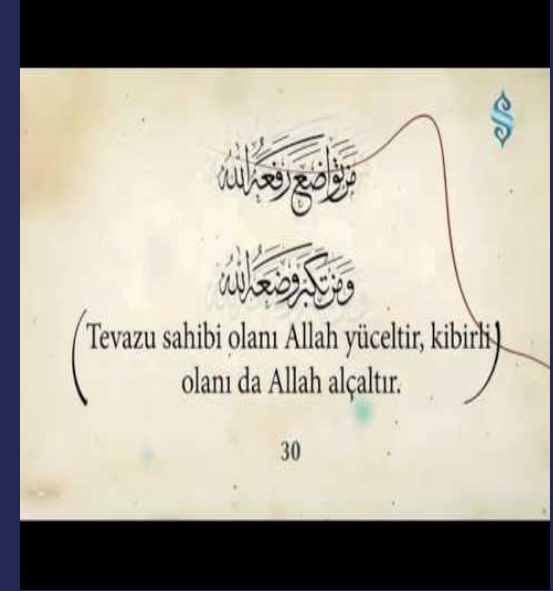 مَنْ تَوَاضَعَ رَفَعَهُ اللهُ
وَمَنْ تَكَبَّرَ وَضَعَهُ اللهُ
(Tevazu sahibi olanı Allah yüceltir, kibirli
olanı da Allah alçaltır.)
30